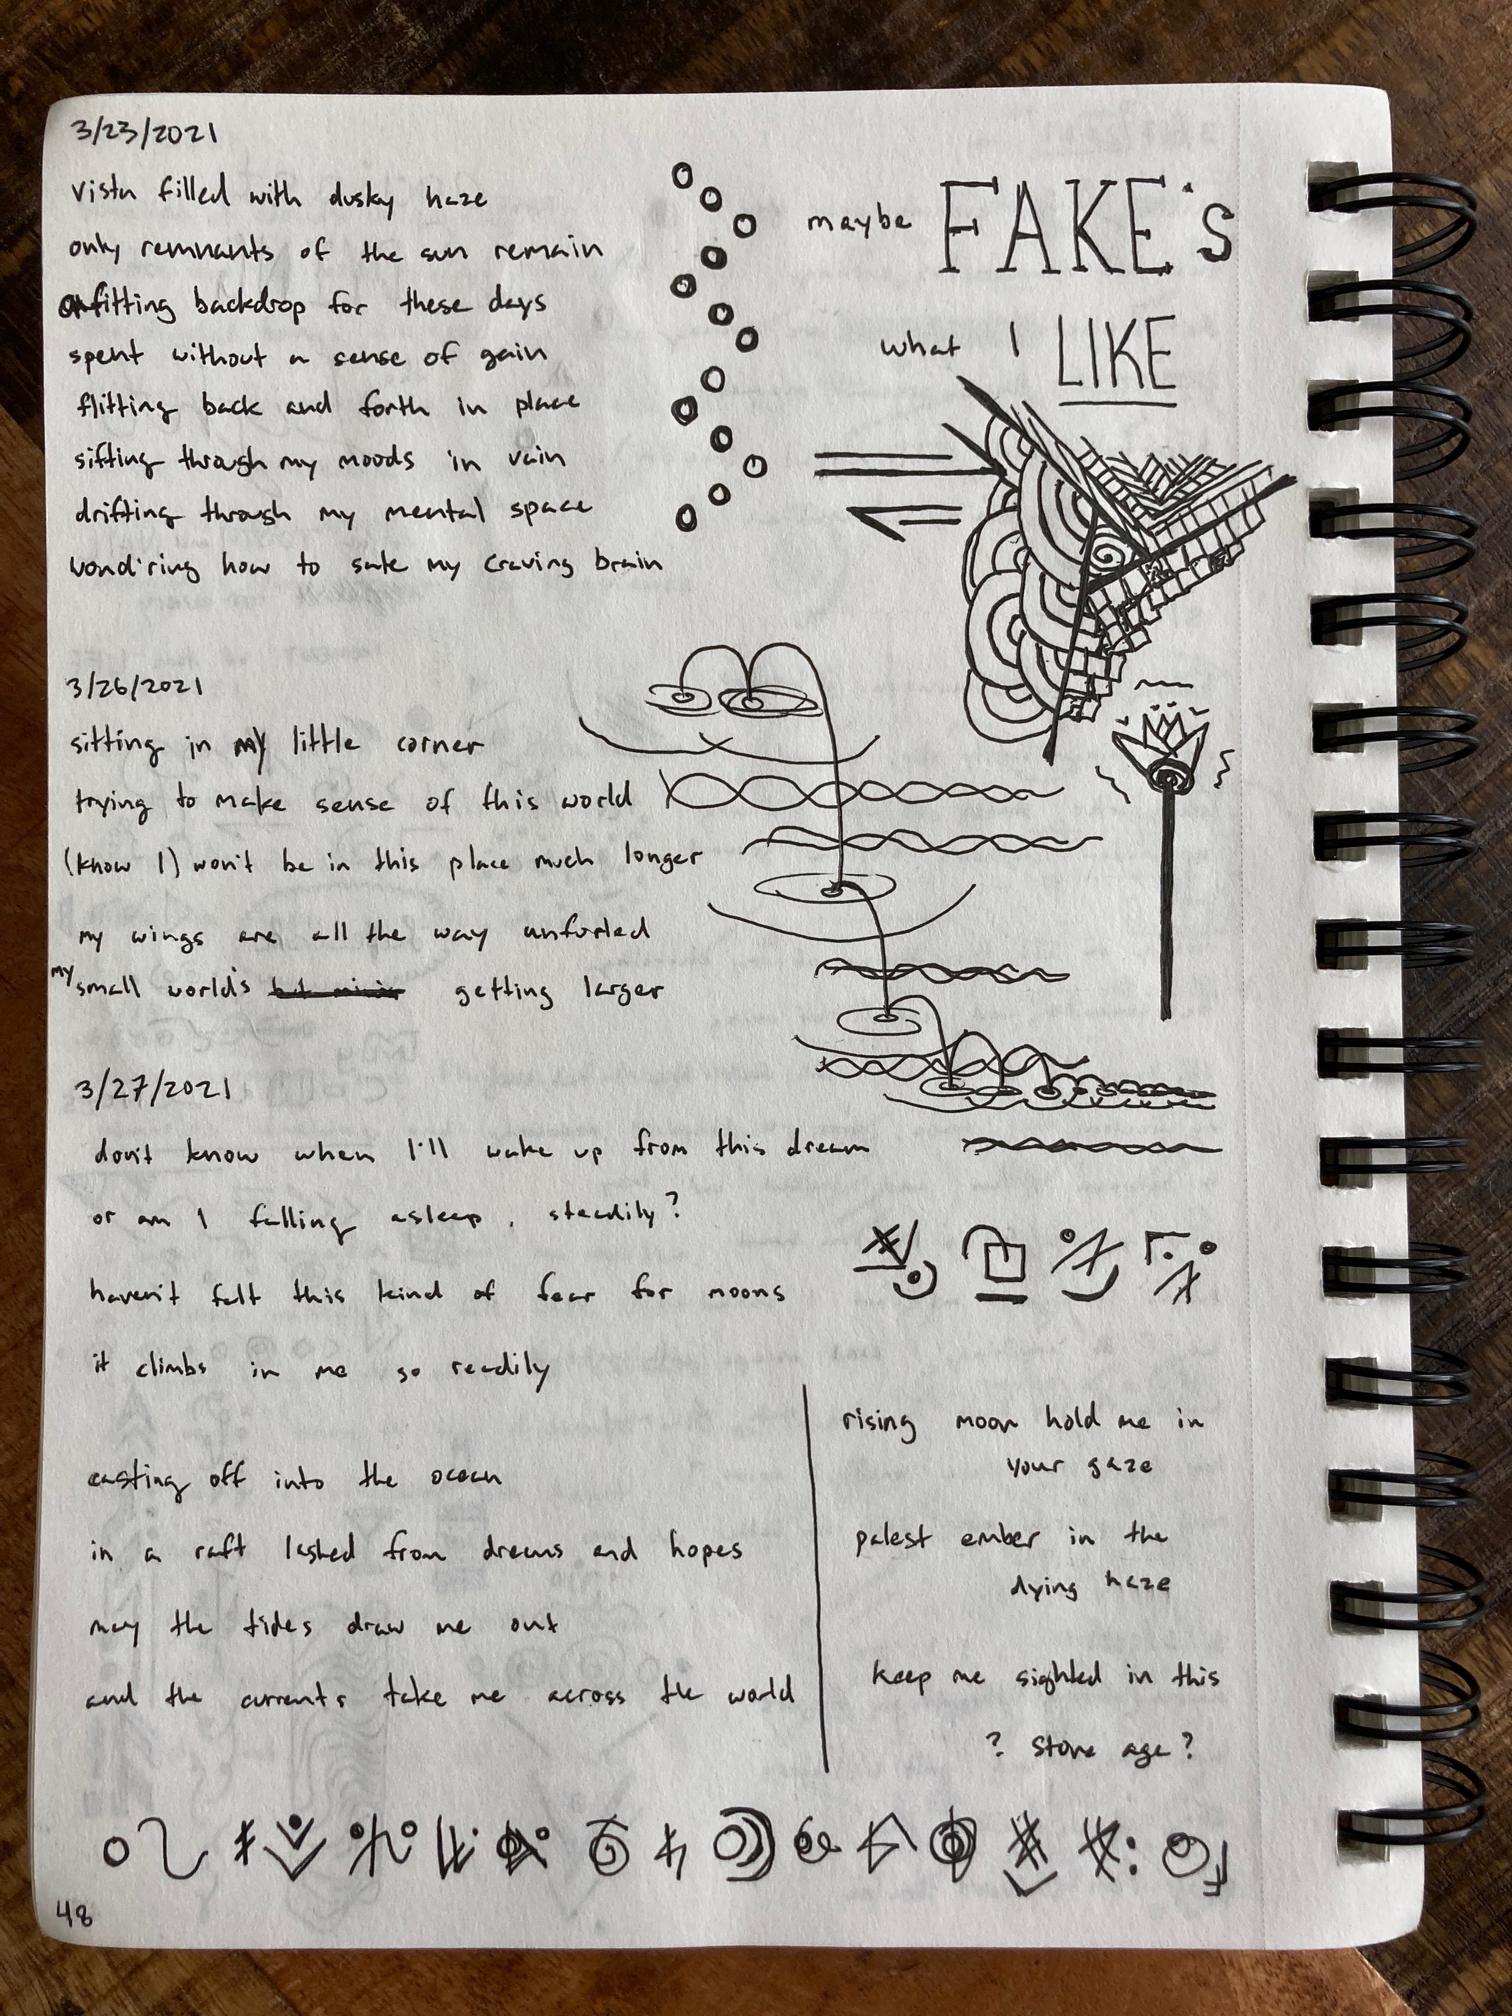 3/23/2021
vista filled with dusky haze
only remnants of the sun remain
fitting backdrop for these days
spent without a sense of gain
flitting back and forth in place
sifting through my moods in vain
drifting through my mental space
wond'ring how to sate my craving brain
maybe FAKE's
what I LIKE
3/26/2021
sitting in my little corner
trying to make sense of this world
(know I) won't be in this place much longer
my wings are all the way unfurled
my small world's getting larger
3/27/2021
don't know when I'll wake up from this dream
or am I falling asleep, steadily?
haven't felt this kind of fear for moons
it climbs in me so readily
casting off into the ocean
in a raft lashed from dreams and hopes
may the tides draw me out
and the currents take me across the world
rising moon hold me in
your gaze
palest ember in the
dying haze
keep me sighted in this
? stone age?
48